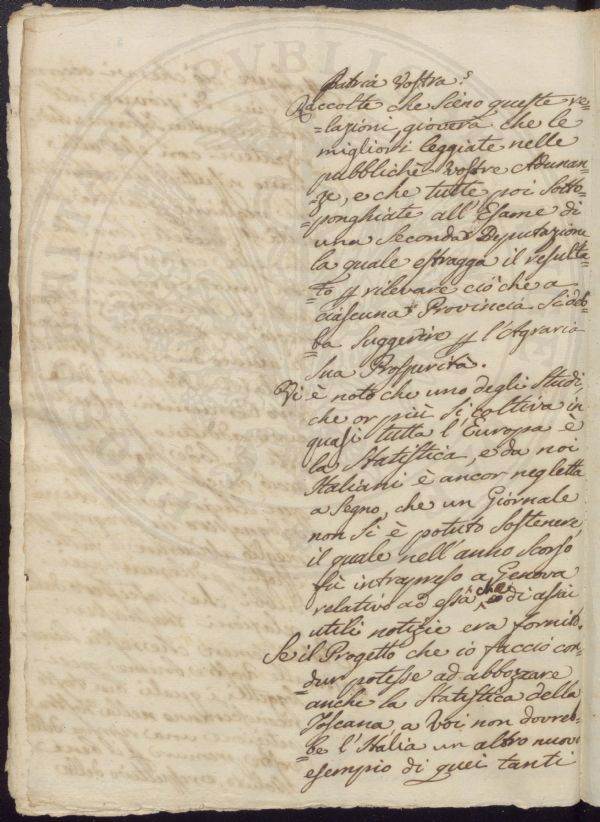 Patria Vostra.
Raccolte che sieno queste re=
=lazioni, gioverà che le
migliori leggiate nelle
pubbliche Vostre Adunan=
=ze, e che tutte poi Sotto=
=ponghiate all'Esame di
una Seconda Deputazione
la quale estragga il resulta=
=to rilevare ciò che a
ciascuna Provincia Si deb=
=ba Suggerire l'Agraria
Sua Prosperità.
Vi è noto che uno degli Studj,
che or più Si coltiva in
quasi tutta l'Europa è
la Statistica, e da noi
Italiani è ancor negletta
a Segno, che un Giornale
non Si è potuto Sostenere,
il quale nell'anno Scorso
fù intrapreso a Genova
relativo ad essa che di assai
utili notizie era fornito.
Se il Progetto che io faccio con=
=dur potesse ad abbozzare
anche la Statistica della
Toscana a Voi non dovreb=
=be l'Italia un altro nuovo
esempio di quei tanti